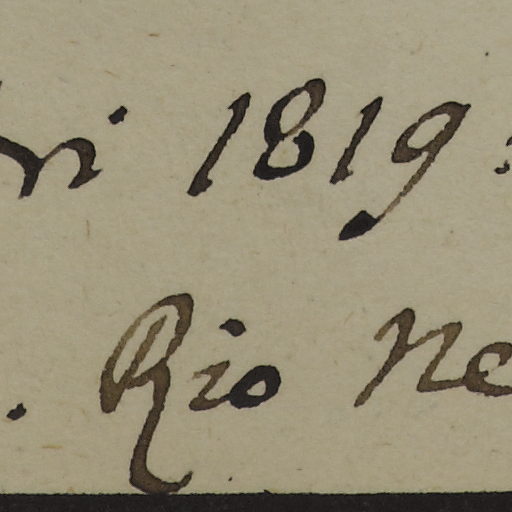 ri 1819.
. Rio Ne